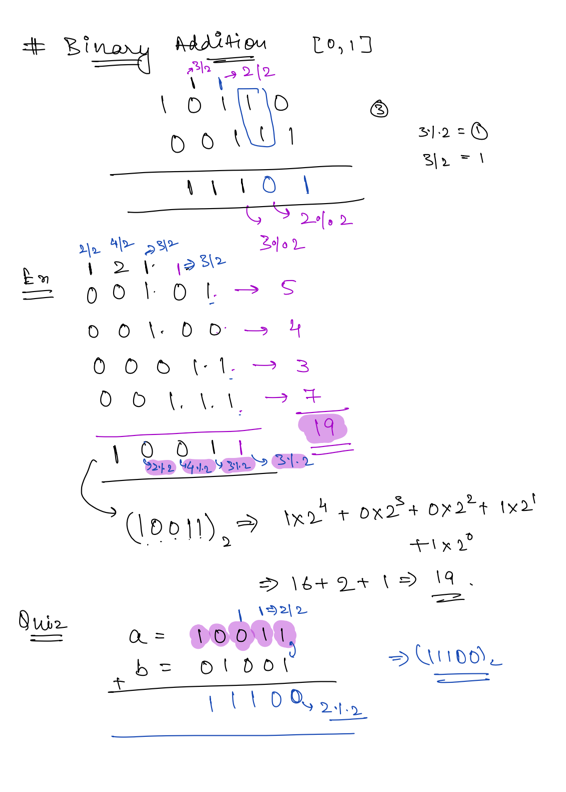 # Binary Addition [0,1]
→3/2 → 2/2
1 1
1 0 1 1 0
0 0 1 1 1
1 1 1 0 1
→ 2%2
3%2
③
3%2 = ①
3/2 = 1
2/2 4/2 →3/2
1 2 1 1 ⇒ 3/2
Ex
0 0 1 0 1 → 5
0 0 1 0 0 → 4
0 0 0 1 1 → 3
0 0 1 1 1 → 7
19
1 0 0 1 1
→2%2 →4%2 →3%2 → 3%2
(10011)₂ ⇒ 1x2⁴ + 0x2³ + 0x2² + 1x2¹
+ 1x2⁰
⇒ 16 + 2 + 1 ⇒ 19.
Quiz
1 1⇒2/2
a = 1 0 0 1 1
+ b = 0 1 0 0 1
1 1 1 0 0 → 2%2
⇒ (11100)₂